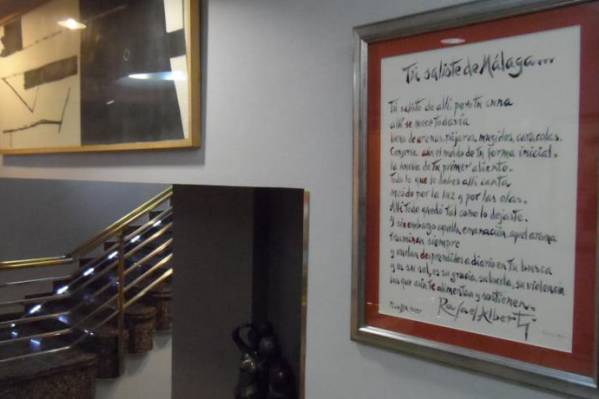 Tú saliste de Málaga...
Tú saliste de allí pero tu cuna
allí se mece todavía
llena de arenas, pájaros, mugidos, caracolas.
Conserva aún el molde de tu forma inicial.
la huella de tu primer aliento.
Todo lo que no sabes allí canta
mecido por la luz y por las olas.
Allí todo quedó tal como lo dejaste.
Y sin embargo aquella emanación, aquel aroma
trasminan siempre
y vuelan desprendidos a diario en tu busca
y es su sol, es su gracia, su hondo, su violencia
los que aún te alimentan y sostienen.
Rafael Alberti